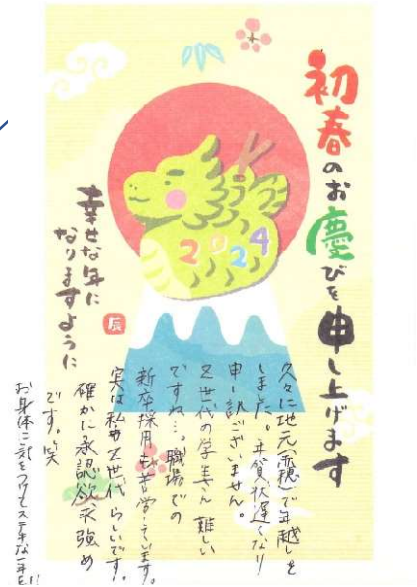 初春のお慶びを申し上げます
2024
幸せな年に
なりますように
辰
久々に地元(霞)で年越しを
しました。年賀状遅くなり
申し訳ございません。
Z世代の学生さん 難しい
ですね…。職場での
新卒採用も苦労しています。
実は私もZ世代らしいです。
確かに承認欲求強め
です。笑
お身体に気をつけてステキな一年を!!